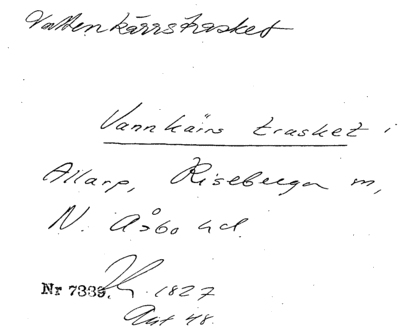 Vattenkärrstrasket
Vannkärs trasket i
Allarp, Riseberga m,
N. Åsbo hd.
Nr 7339. 1827
Akt 48.